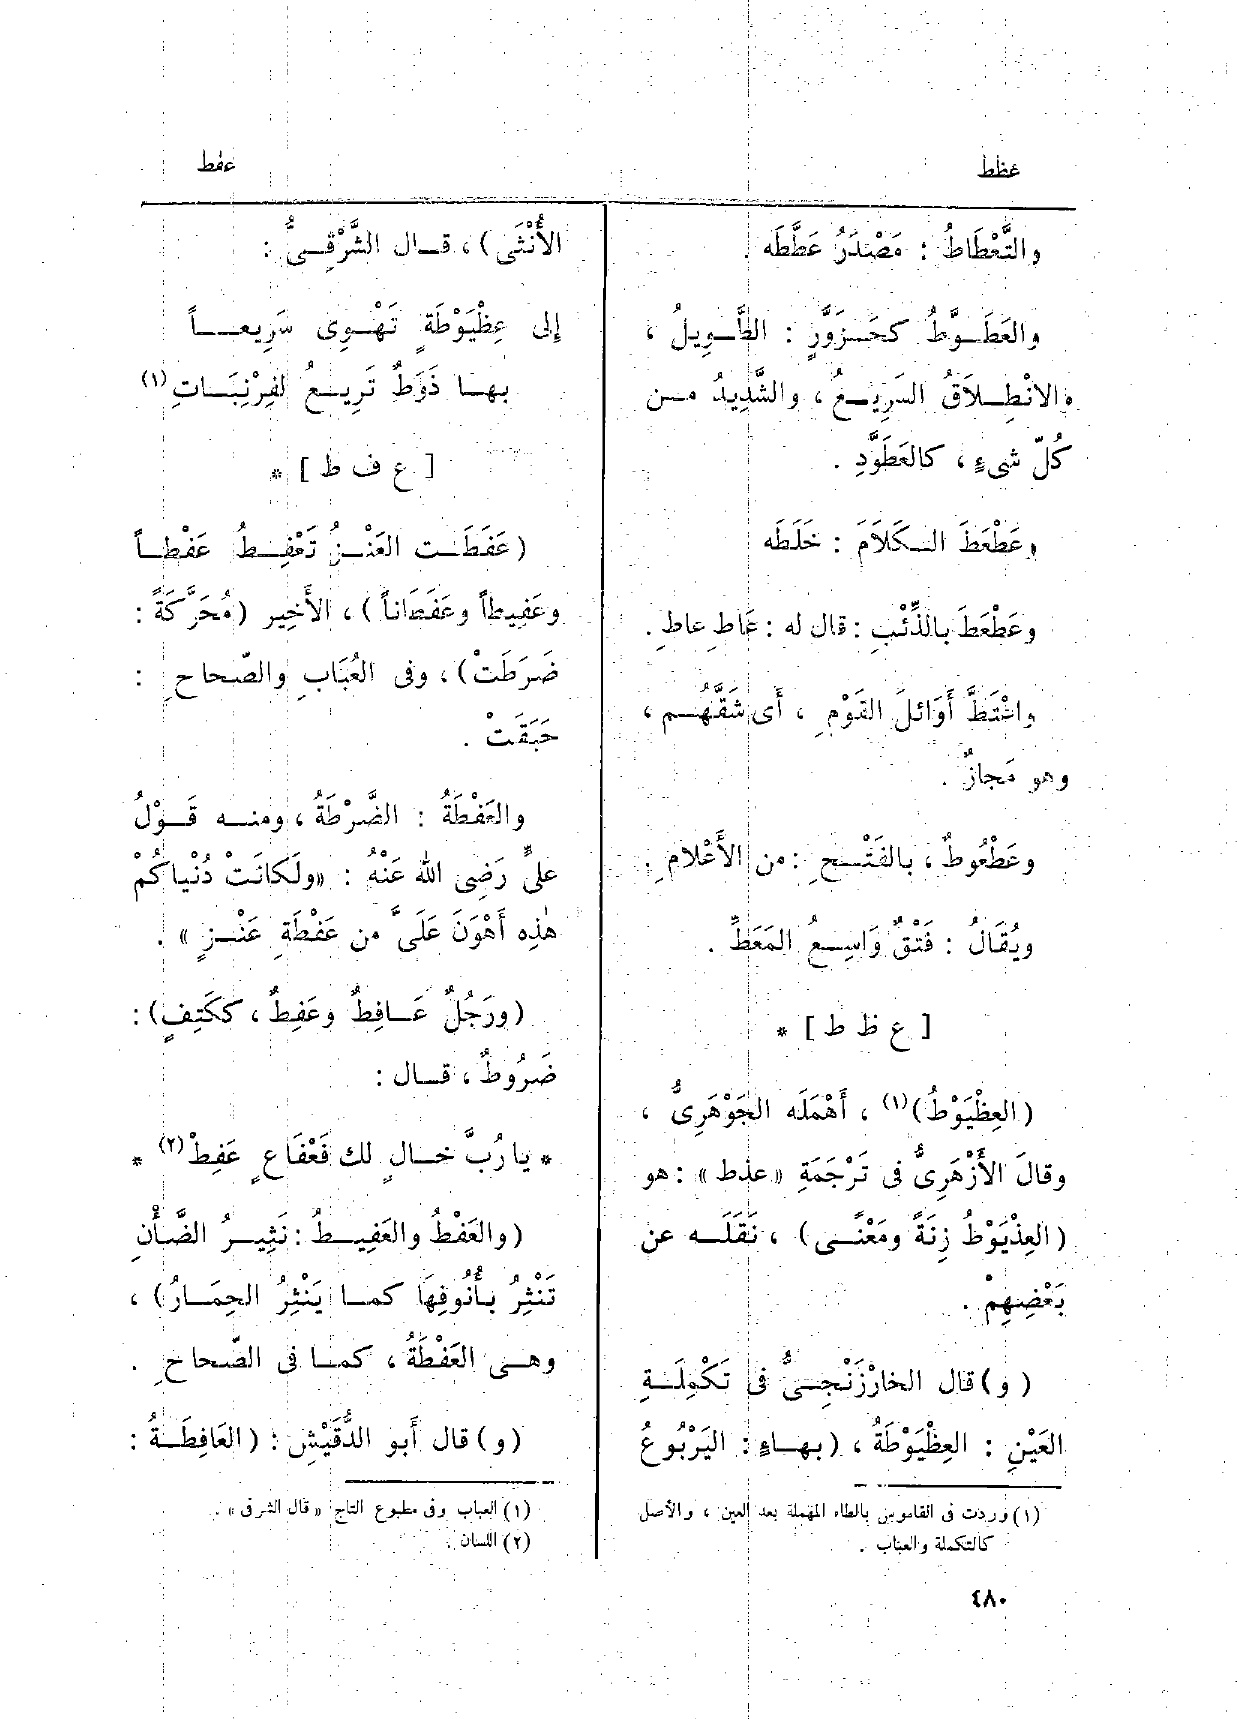 عظط
عفط
والتَّعْطَاطُ : مَصْدَرُ عَطَّطَه .
والعَطَوَّطُ كحَزَوَّرٍ : الطَّوِيلُ ،
والانْطِلاَقُ السَرِيعُ ، والشَّدِيدُ من
كُلّ شىءٍ ، كالعَطَوَّدِ .
وعَطْعَطَ الكَلاَمَ : خَلَطَه
وعَطْعَطَ بالذِّئْبِ : قال له : عَاطِ عاطِ .
واعْتَطَّ أَوَائلَ القَوْمِ ، أَى شَقَّهُم ،
وهو مَجازٌ .
وعَطْعُوطٌ ، بالفَتْحِ : من الأَعْلامِ .
ويُقَالُ : فَتْقٌ وَاسِعُ المَعَطِّ .
[ ع ظ ط ] *
(العِظْيَوْطُ)(١) ، أَهْمَلَه الجَوْهَرِىُّ ،
وقالَ الأَزْهَرِىُّ فى تَرْجَمَةِ «عذط» : هو
(العِذْيَوْطُ زِنَةً ومَعْنًى) ، نَقَلَه عن
بَعْضِهِمْ .
(و) قال الخارْزَنْجِىُّ فى تَكْمِلَةِ
العَيْنِ : العِظْيَوْطَةُ ، (بهاءٍ : اليَرْبُوعُ
(١) وردت فى القاموس بالطاء المهملة بعد العين ، والأصل
كالتكملة والعباب .
الأُنْثَى) ، قال الشَّرْقِىُّ :
إلى عِظْيَوْطَةٍ تَهْوِى سَرِيعاً
بها ذَوَطٌ تَرِيعُ لفِرْنِبَاتِ(١)
[ ع ف ط ] *
(عَفَطَت العَنْزُ تَعْفِطُ عَفْطاً
وعَفِيطاً وعَفَطَاناً) ، الأَخِير (مُحَرَّكَةً :
ضَرَطَتْ) ، وفى العُبَابِ والصّحاحِ :
حَبَقَتْ .
والعَفْطَةُ : الضَّرْطَةُ ، ومنه قَوْلُ
علىٍّ رَضِى الله عَنْهُ : «ولَكانَتْ دُنْياكُمْ
هٰذِه أَهْوَنَ عَلَىَّ من عَفْطَةِ عَنْزٍ » .
(ورَجُلٌ عَافِطٌ وعَفِطٌ ، ككَتِفٍ) :
ضَرُوطٌ ، قال :
* يا رُبَّ خالٍ لك فَعْفَاعٍ عَفِطْ(٢) *
(والعَفْطُ والعَفِيطُ : نَثِيرُ الضَّأْنِ
تَنْثِرُ بأُنُوفِهَا كما يَنْثِرُ الحِمَارُ) ،
وهى العَفْطَةُ ، كما فى الصّحاحِ .
(و) قال أَبو الدُّقَيْشِ : (العَافِطَةُ :
(١) العباب وفى مطبوع التاج «قال الشرقى» .
(٢) اللسان .
٤٨٠